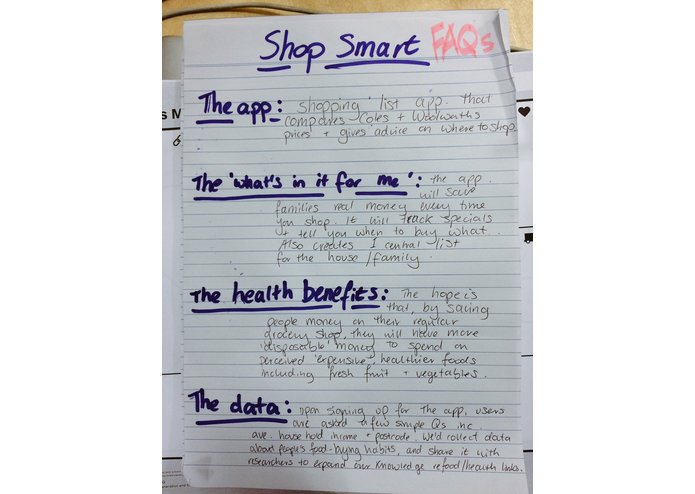 Shop Smart FAQs
The app: shopping list app that
compares Coles + Woolworths
prices + gives advice on where to shop.
The 'what's in it for me': the app
will save
families real money every time
you shop. It will track specials
+ tell you when to buy what.
Also creates 1 central list
for the house/family.
The health benefits: The hope is
that, by saving
people money on their regular
grocery shop, they will have more
'disposable' money to spend on
perceived 'expensive', healthier foods
including fresh fruit + vegetables.
The data: upon signing up for the app, users
are asked a few simple Qs inc.
ave. household income + postcode. We'd collect data
about people's food-buying habits, and share it with
researchers to expand our knowledge re food/health links.